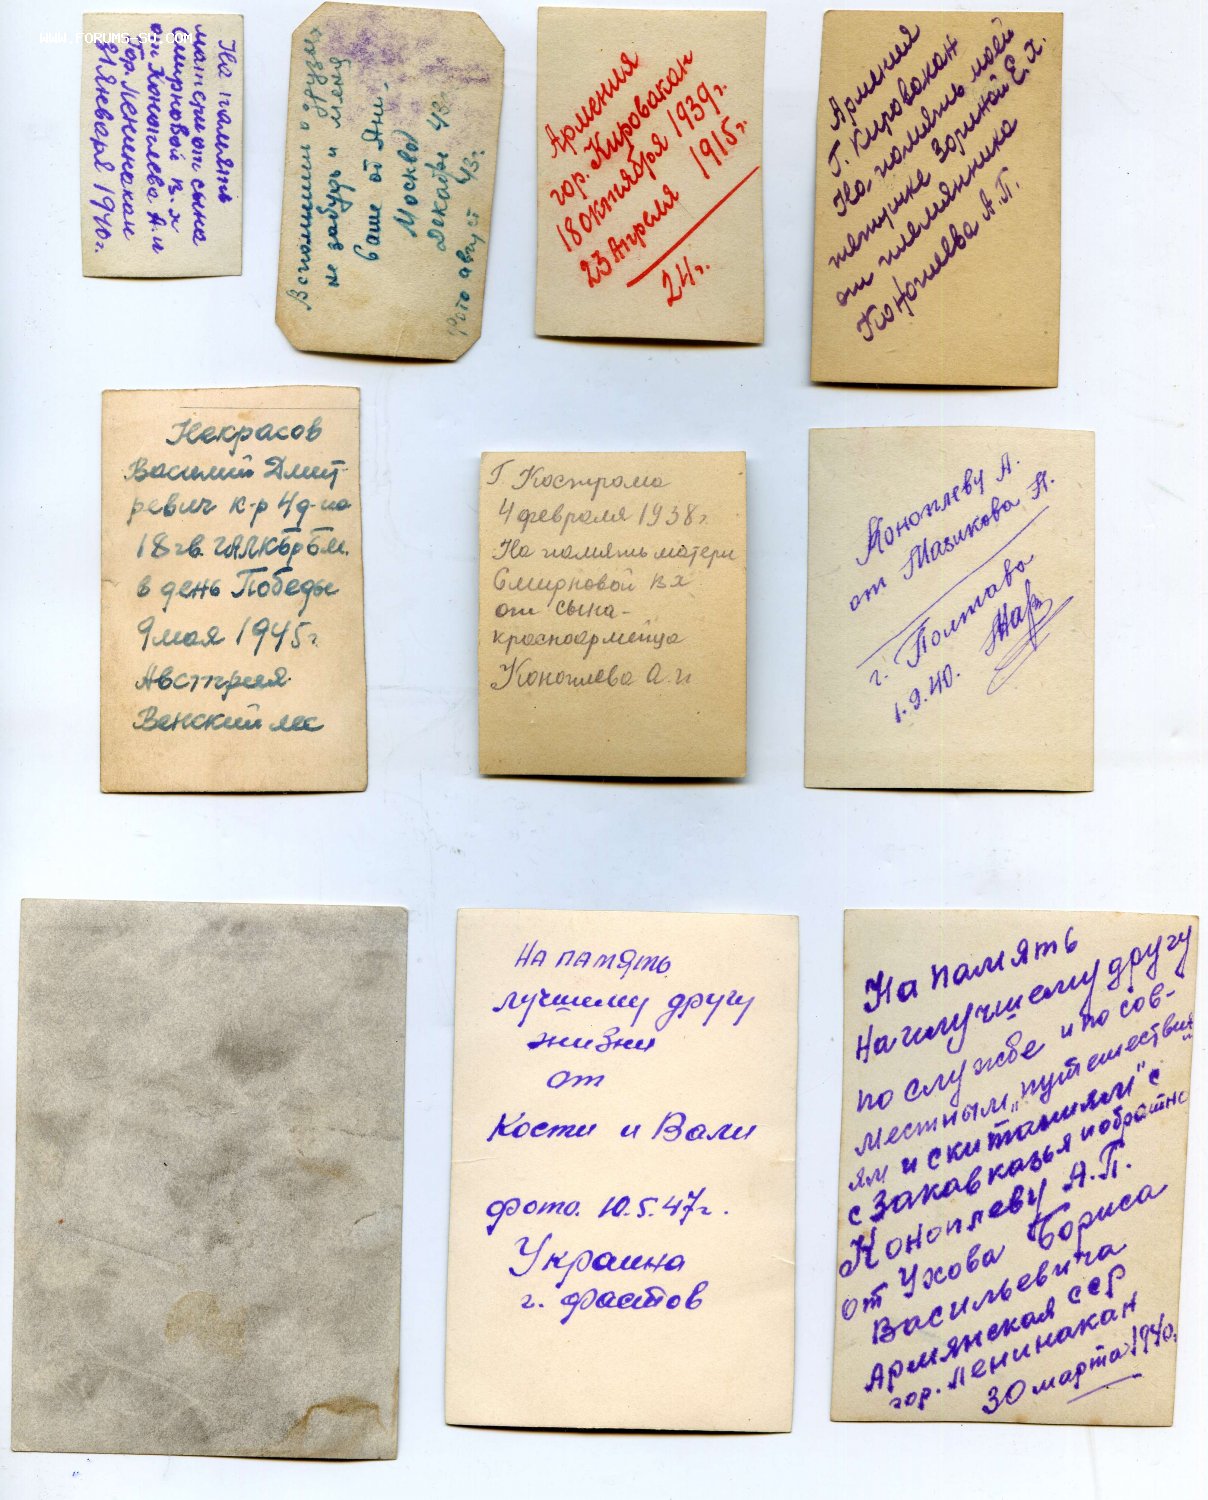 WWW.FORUMS-SU.COM
На память
матери от сына
Смирновой В.Х
от Коноплева А.П
Гор. Ленинакан
31 Января 1940г.
Вспомнишь о друзьях
не забудь и меня
Саше от Ани.
Москва
Декабрь 43г.
Фото август 43г.
Армения
гор. Кировакан
18 октября 1939г.
23 Апреля 1915г.
24г.
Армения
Г. Кировакан
На память моей
тетушке Зориной Е.Х.
от племянника
Коноплева А.П.
Некрасов
Василий Дмит-
ревич к-р 4 д-на
18 гв.
в день Победы
9 мая 1945г.
Австрия
Венский лес
Г. Кострома
4 февраля 1938г.
На память матери
Смирновой В Х
от сына-
красноармейца
Коноплева А.П
Коноплеву А.
от Мазикова Н.
г. Полтава
1.9.40.
На память
лучшему другу
жизни
от
Кости и Вали
фото. 10.5.47г.
Украина
г. Фастов
На память
Наилучшему другу
по службе и по сов-
местным „путешестви
ям и скитаниям" с
с Закавказья и обратно
Коноплеву А.П.
от Ухова Бориса
Васильевича
Армянская сср
гор. Ленинакан
30 марта 1940г.